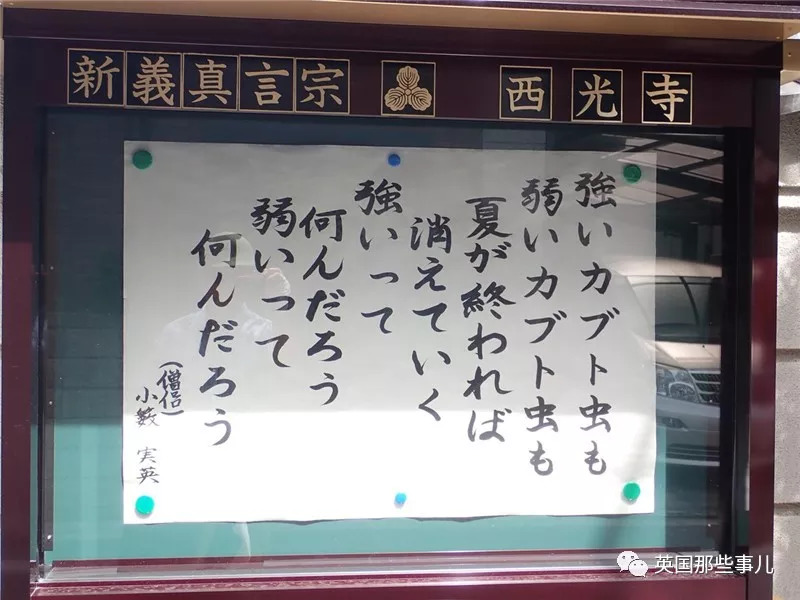 新義真言宗 西光寺
強いカブト虫も
弱いカブト虫も
夏が終われば
消えていく
強いって
何んだろう
弱いって
何んだろう
(僧侶)
小籔 実英
英国那些事儿